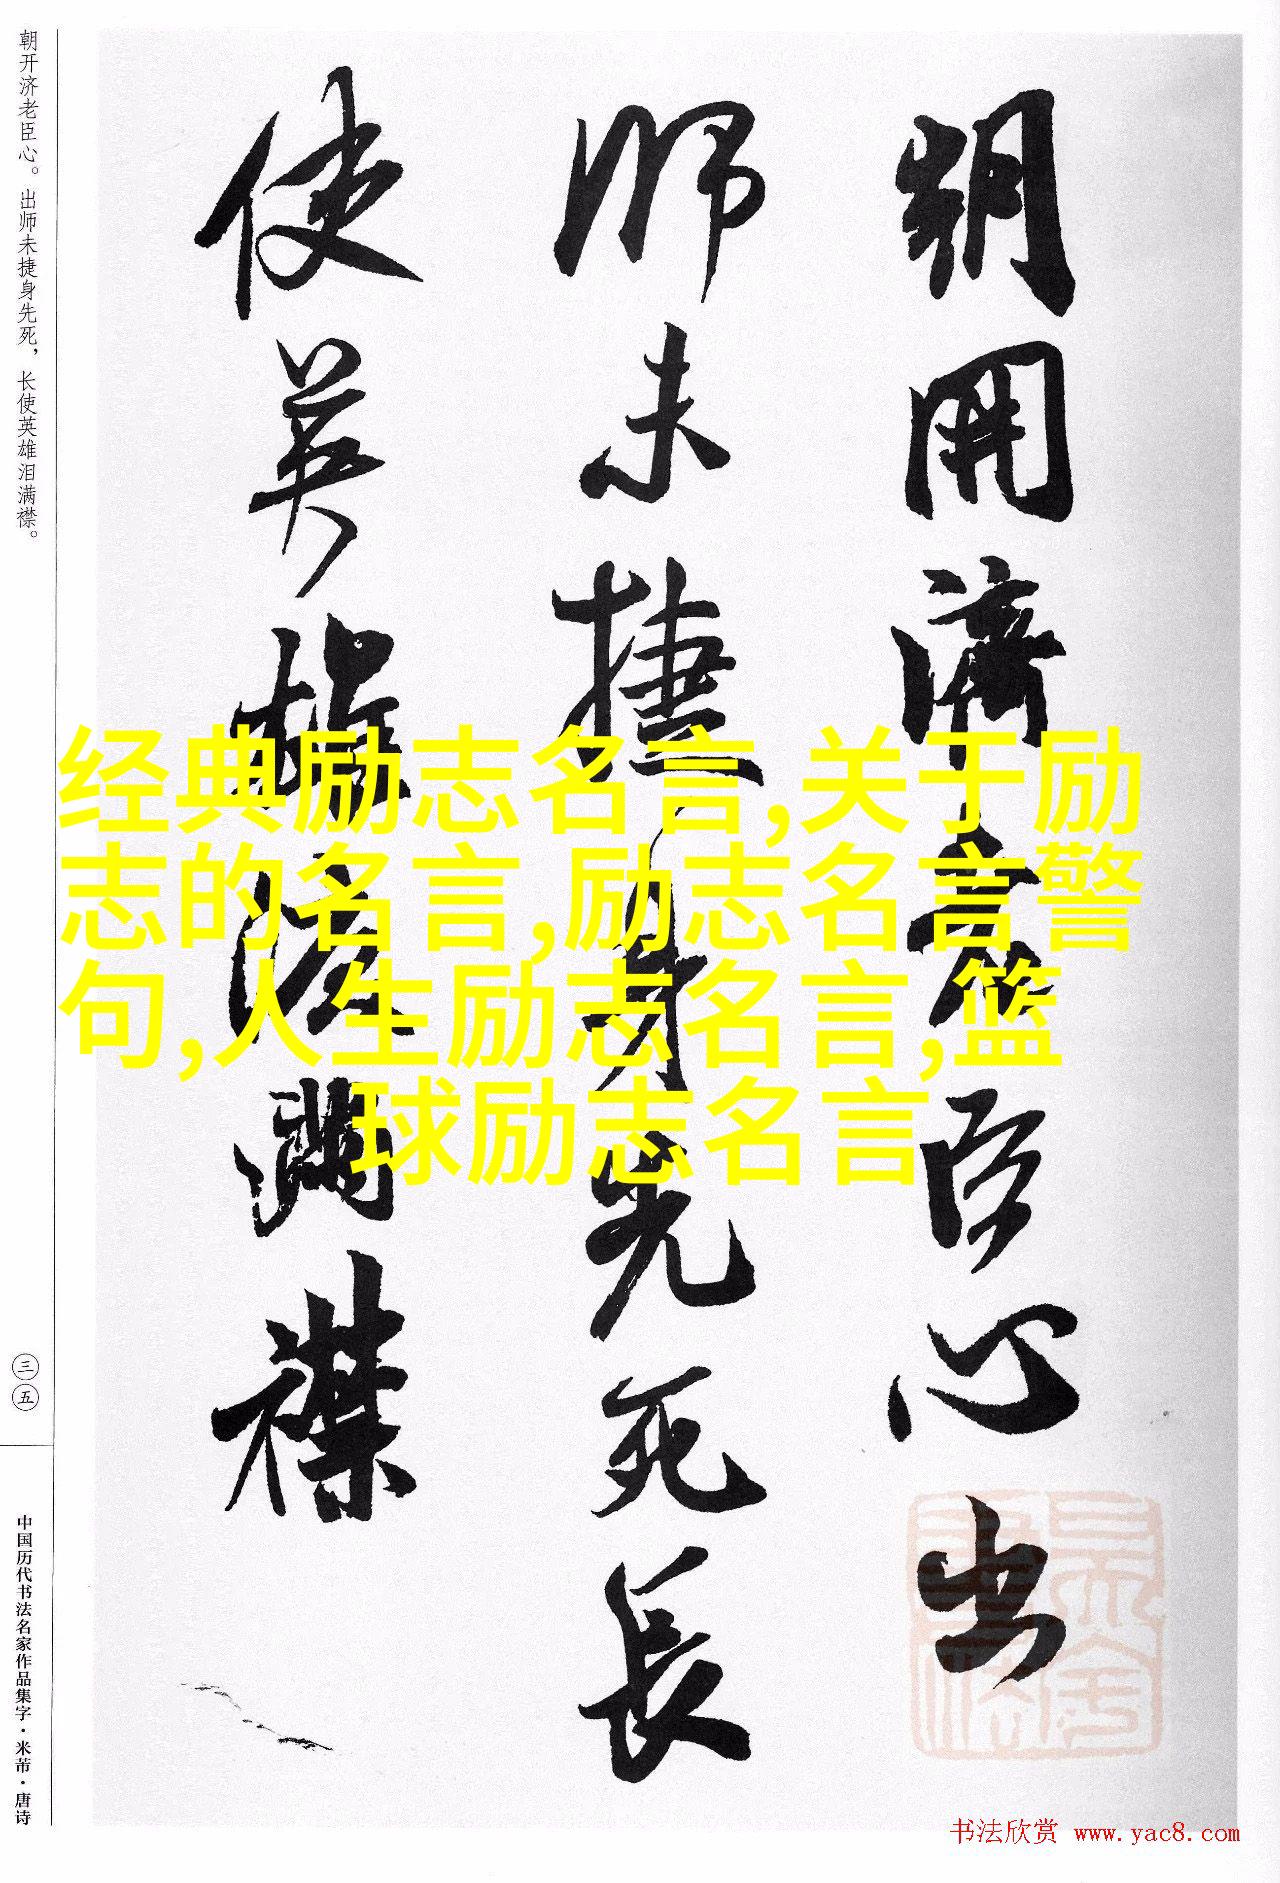 朝开济老臣心。出师未捷身先死，长使英雄泪满襟。
三五
中国历代书法名家作品集字·米芾·唐诗
朝開濟老臣心出
師未捷身先死長
使英雄淚滿襟
经典励志名言,关于励
志的名言,励志名言警
句,人生励志名言,篮
球励志名言
书法欣赏 www.yac8.com